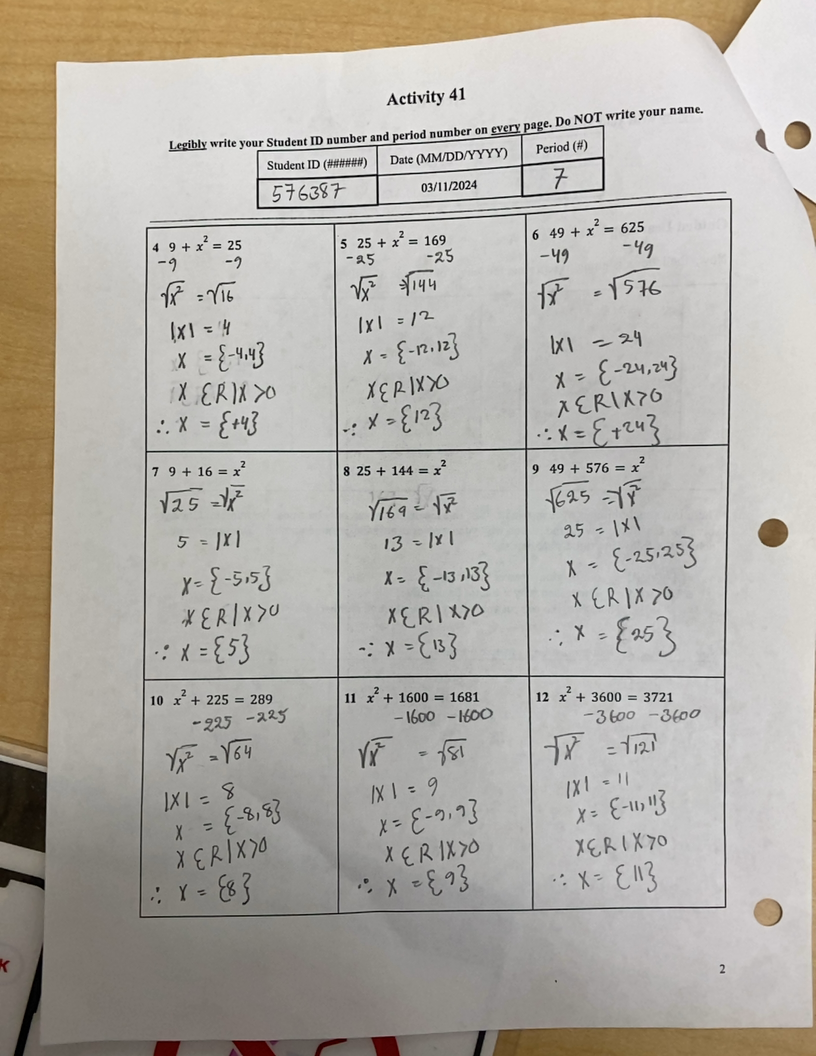 Activity 41
Legibly write your Student ID number and period number on every page. Do NOT write your name.
Student ID (######) Date (MM/DD/YYYY) Period (#)
576387 03/11/2024 7
4 9 + x² = 25
-9 -9
√x² = √16
|x| = 4
x = {-4,4}
x ℰ R | x > 0
∴ x = {+4}
5 25 + x² = 169
-25 -25
√x² = √144
|x| = 12
x = {-12,12}
x ℰ R | x > 0
∴ x = {12}
6 49 + x² = 625
-49 -49
√x² = √576
|x| = 24
x = {-24,24}
x ℰ R | x > 0
∴ x = {+24}
7 9 + 16 = x²
√25 = √x²
5 = |x|
x = {-5,5}
x ℰ R | x > 0
∴ x = {5}
8 25 + 144 = x²
√169 = √x²
13 = |x|
x = {-13,13}
x ℰ R | x > 0
∴ x = {13}
9 49 + 576 = x²
√625 = √x²
25 = |x|
x = {-25,25}
x ℰ R | x > 0
∴ x = {25}
10 x² + 225 = 289
-225 -225
√x² = √64
|x| = 8
x = {-8,8}
x ℰ R | x > 0
∴ x = {8}
11 x² + 1600 = 1681
-1600 -1600
√x² = √81
|x| = 9
x = {-9,9}
x ℰ R | x > 0
∴ x = {9}
12 x² + 3600 = 3721
-3600 -3600
√x² = √121
|x| = 11
x = {-11,11}
x ℰ R | x > 0
∴ x = {11}
2
K